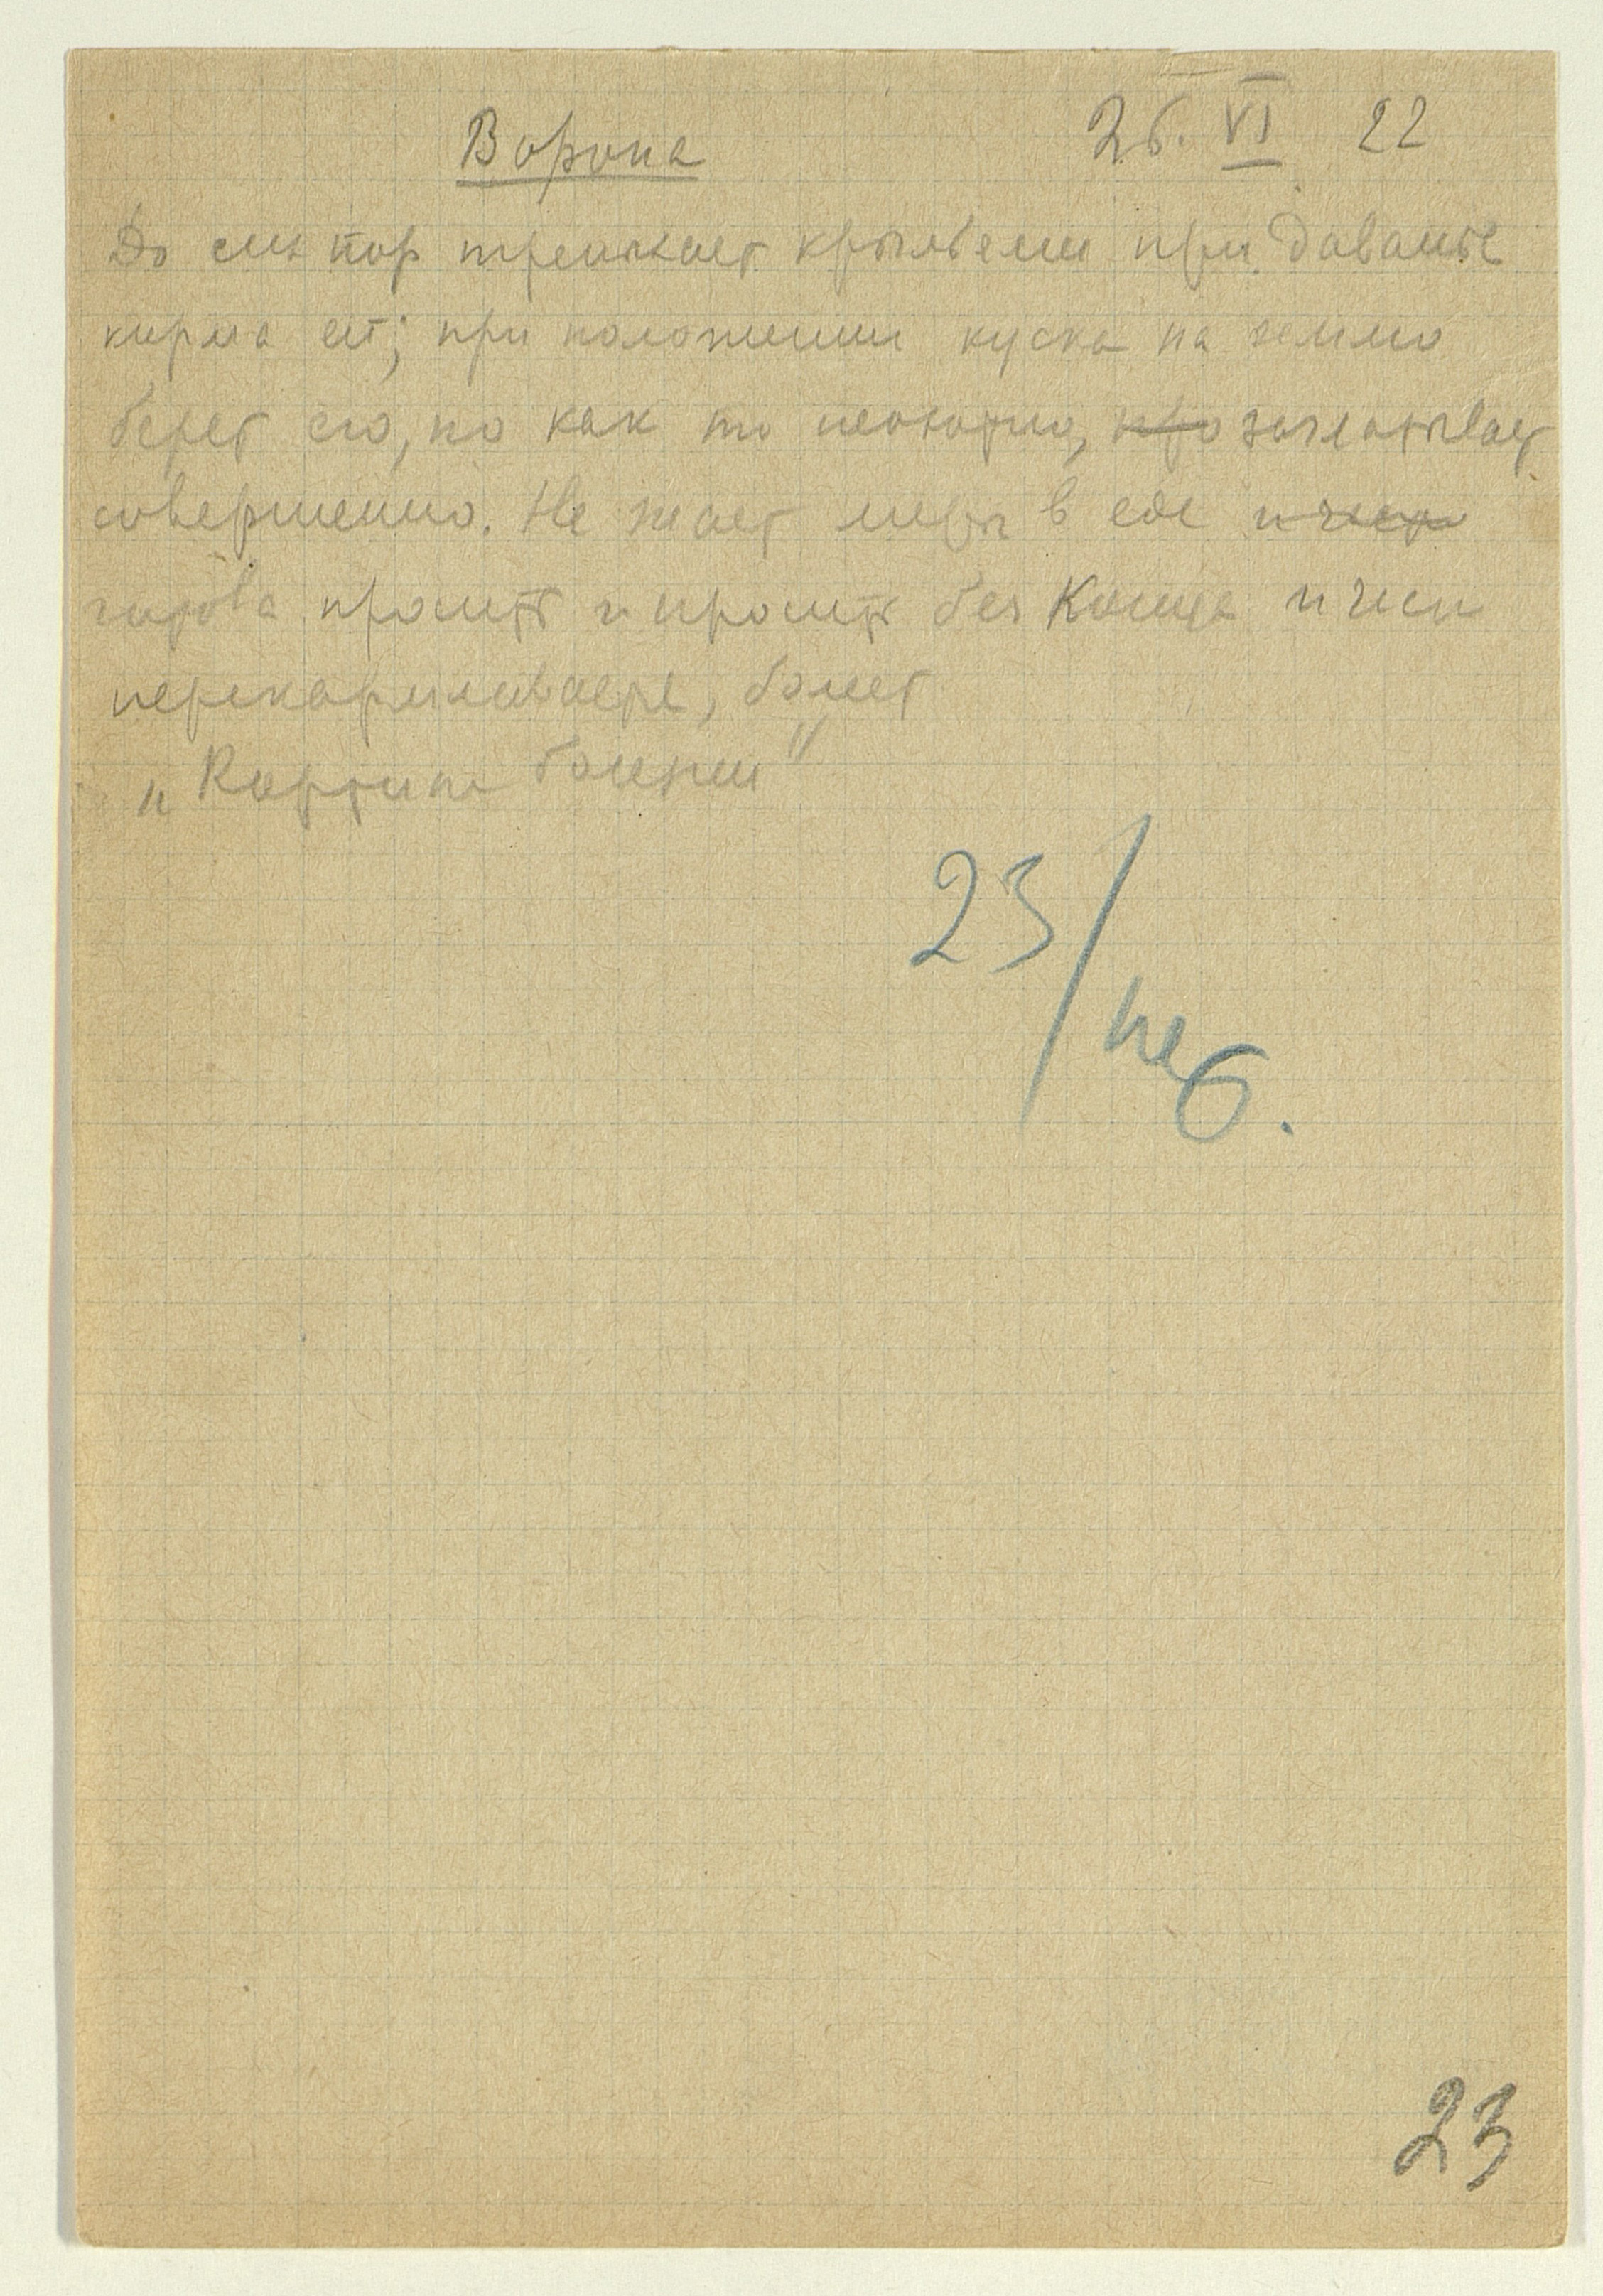 Ворона 26. VI 22
До сих пор трепыхает крыльями при даванье
корма ей; при положении куска на землю
берет его, но как то неохотно, про заглатывает
совершенно. Не знает меры в еде и
готова просить и просить без конца и
перекармливаете, болеет
„Картина болезни"
23/не б.
23